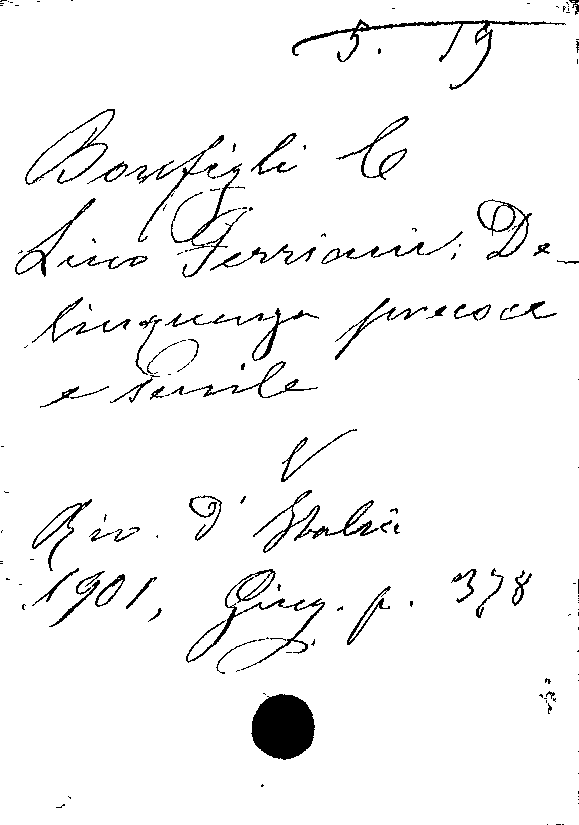 5. 19
Bonfigli C
Lino Ferriani: De-
linquenza precoce
e senile
V
Riv. d'Italia
1901, Giug. p. 378